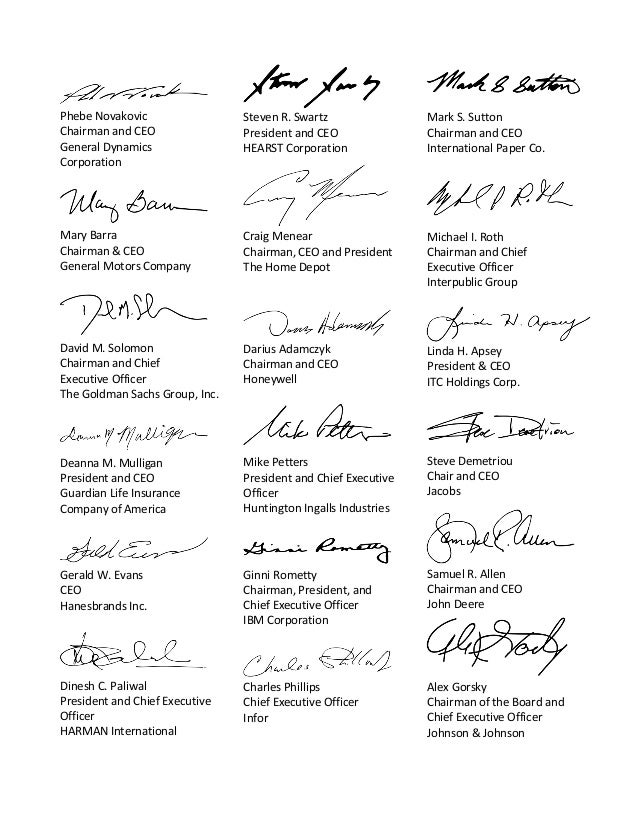 Phebe Novakovic
Chairman and CEO
General Dynamics
Corporation
Steven R. Swartz
President and CEO
HEARST Corporation
Mark S Sutton
Mark S. Sutton
Chairman and CEO
International Paper Co.
Mary Barra
Chairman & CEO
General Motors Company
Craig Menear
Chairman, CEO and President
The Home Depot
Michael I. Roth
Chairman and Chief
Executive Officer
Interpublic Group
David M. Solomon
Chairman and Chief
Executive Officer
The Goldman Sachs Group, Inc.
Darius Adamczyk
Chairman and CEO
Honeywell
Linda H. Apsey
Linda H. Apsey
President & CEO
ITC Holdings Corp.
Deanna M Mulligan
Deanna M. Mulligan
President and CEO
Guardian Life Insurance
Company of America
Mike Petters
Mike Petters
President and Chief Executive
Officer
Huntington Ingalls Industries
Steve Demetriou
Chair and CEO
Jacobs
Gerald W. Evans
CEO
Hanesbrands Inc.
Ginni Rometty
Ginni Rometty
Chairman, President, and
Chief Executive Officer
IBM Corporation
Samuel R. Allen
Samuel R. Allen
Chairman and CEO
John Deere
Dinesh C. Paliwal
President and Chief Executive
Officer
HARMAN International
Charles Phillips
Charles Phillips
Chief Executive Officer
Infor
Alex Gorsky
Chairman of the Board and
Chief Executive Officer
Johnson & Johnson